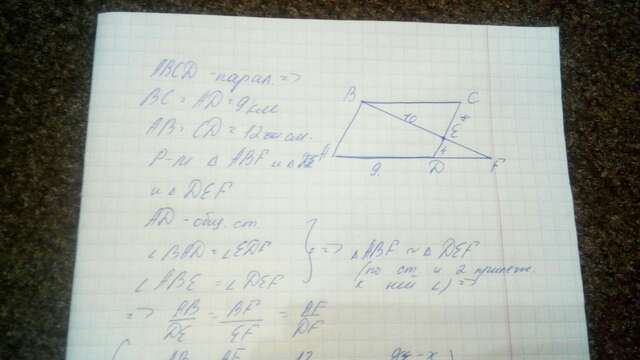 ABCD - парал. =>
BC = AD = 9 см
AB = CD = 12 см.
Р-м △ ABF и
и △ DEF
B C
10 x
E
4
A 9 D F
AD - общ. ст.
∠BAD = ∠EDF
∠ABE = ∠DEF
=> △ABF ~ △DEF
(по ст. и 2 прилеж.
к ней ∠) =>
=> AB/DE = BF/EF = AF/DF
AB AF 12